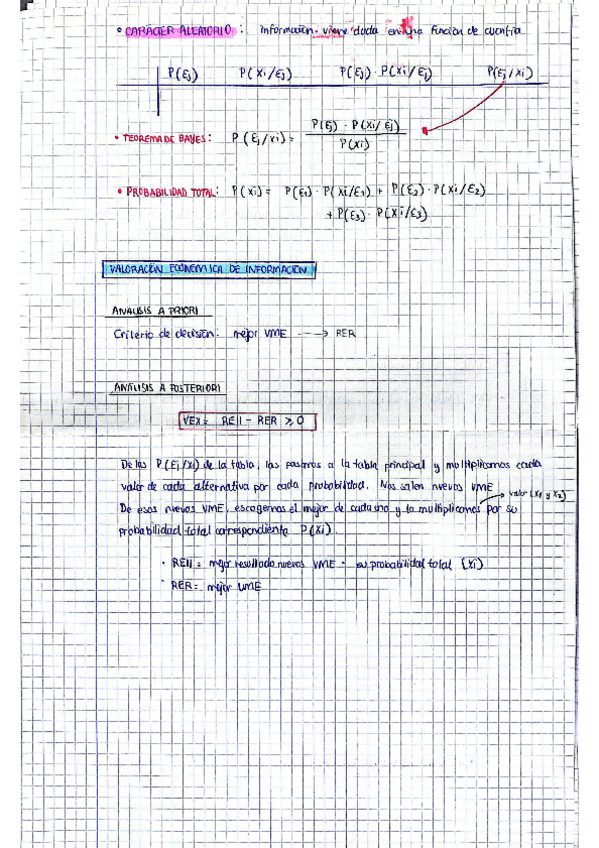 • CARÁCTER ALEATORIO : información viene dada en una función de cuantía
P(Ej) P(Xi/Ej) P(Ej) · P(Xi/Ej) P(Ej/Xi)
• TEOREMA DE BAYES: P(Ej/xi) = P(Ej) · P(Xi/Ej) / P(Xi)
• PROBABILIDAD TOTAL: P(Xi) = P(E1) · P(Xi/E1) + P(E2) · P(Xi/E2)
+ P(E3) · P(Xi/E3)
VALORACIÓN ECONÓMICA DE INFORMACIÓN
ANÁLISIS A PRIORI
Criterio de decisión: mejor VME ---→ RER
ANÁLISIS A POSTERIORI
VEX = REII - RER ≥ 0
De las P(Ej/Xi) de la tabla, las pasamos a la tabla principal y multiplicamos cada
valor de cada alternativa por cada probabilidad. Nos salen nuevos VME
→ valor (X1 y X2)
De esos nuevos VME, escogemos el mejor de cada uno y lo multiplicamos por su
probabilidad total correspondiente P(Xi).
· REII = mejor resultado nuevos VME · su probabilidad total (Xi)
· RER = mejor VME